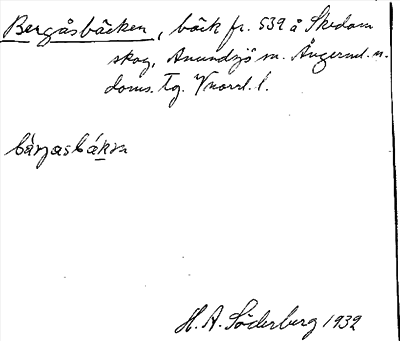 Bergåsbäcken, bäck fr. 539 å Skedom
skog, Anundsjö sn. Ångerml. n.
doms. Tg. Vnorrl. l.
H. A. Söderberg 1932